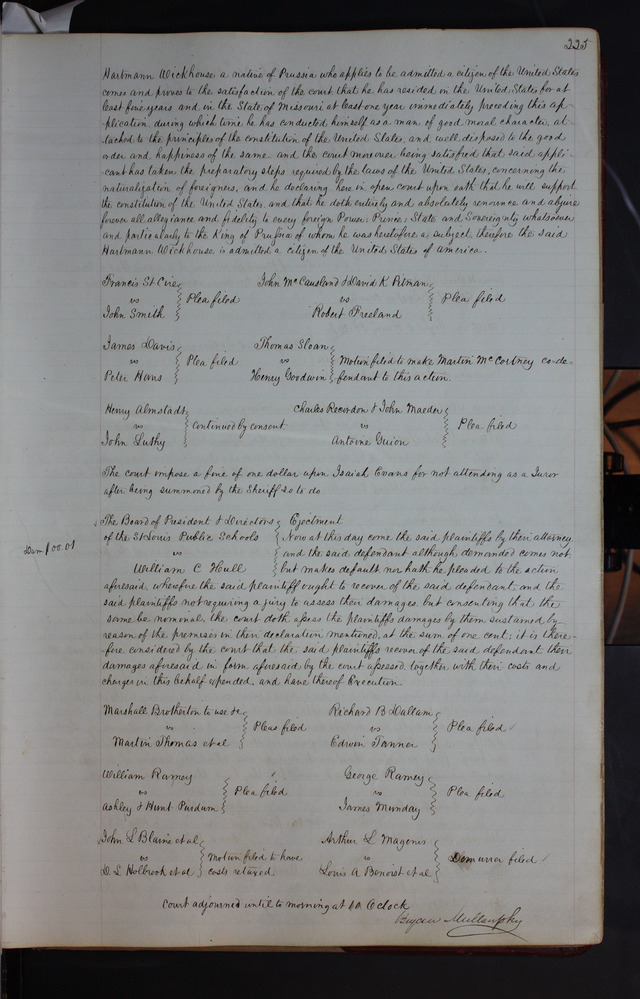 225
Hartmann Wickhouse a native of Prussia who applies to be admitted a citizen of the United States
comes and proves to the satisfaction of the court that he has resided in the United States for at
least five years and in the State of Missouri at least one year immediately preceding this ap-
plication, during which time he has conducted himself as a man of good moral character, at
tached to the principles of the constitution of the United States, and well disposed to the good
order and happiness of the same. and the court moreover being satisfied that said appli-
cant has taken the preparatory steps required by the laws of the United States, concerning the
naturalization of foreigners, and he declaring here in open court upon oath that he will support
the constitution of the United States, and that he doth entirely and absolutely renounce and abjure
forever all allegiance and fidelity to every foreign Power, Prince, State and Sovereignty whatsoever
and particularly to the King of Prussia of whom he was heretofore a subject, therefore the said
Hartmann Wickhouse is admitted a citizen of the United States of america.
Francis St Cire
vs
John Smith
Plea filed
John McCausland & David K Pitman
vs
Robert Freeland
Plea filed
James Davis
vs
Peter Haus
Plea filed
Thomas Sloan
vs
Henry Goodwin
Motion filed to make Martin McCortney co-de-
fendant to this action.
Henry Almstadt
vs
John Luthy
Continued by consent
Charles Recordon & John Maeder
vs
Antoine Guion
Plea filed
The court impose a fine of one dollar upon Isaiah Evans for not attending as a Juror
after being summoned by the Sheriff so to do
The Board of President & Directors
of the St Louis Public Schools
vs
William C Hull
Dam $00.01
Ejectment
Now at this day come the said plaintiffs by their attorney
and the said defendant although demanded comes not
but makes default, nor hath he pleaded to the action
aforesaid, wherefore the said plaintiff ought to recover of the said defendant, and the
said plaintiffs not requiring a jury to assess their damages, but consenting that the
same be nomenal. the court doth assess the plaintiffs damages by them sustained by
reason of the premises in their declaration mentioned, at the sum of one cent: it is there-
fore considered by the court that the said plaintiffs recover of the said defendant their
damages aforesaid in form aforesaid by the court assessed together with their costs and
charges in this behalf expended, and have thereof Execution.
Marshall Brotherton to use &c
vs
Martin Thomas et al
Pleas filed
Richard B Dallam
vs
Edwin Tanner
Plea filed
William Ramey
vs
Ashley & Hunt Purdum
Plea filed
George Ramey
vs
James Munday
Plea filed
John L Blaine et al
vs
D. L Holbrook et al
Motion filed to have
costs retaxed
Arthur L Magenis
vs
Louis A Benoist et al
Demurrer filed
Court adjourned until to morning at 10 O'clock
Bryan Mullanphy